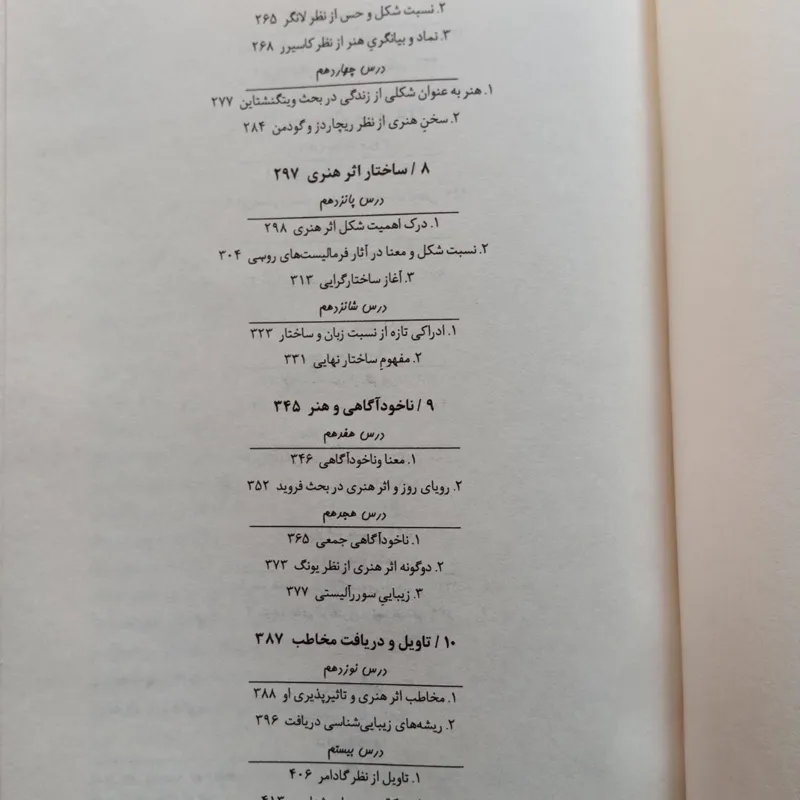 ۲. نسبت شکل و حس از نظر لانگر ۲۶۵
۳. نماد و بیانگریِ هنر از نظر کاسیرر ۲۶۸
درس چهاردهم
۱. هنر به عنوان شکلی از زندگی در بحث ویتگنشتاین ۲۷۷
۲. سخنِ هنری از نظر ریچاردز و گودمن ۲۸۴
۸ / ساختار اثر هنری ۲۹۷
درس پانزدهم
۱. درک اهمیت شکل اثر هنری ۲۹۸
۲. نسبت شکل و معنا در آثار فرمالیست‌های روسی ۳۰۴
۳. آغاز ساختارگرایی ۳۱۳
درس شانزدهم
۱. ادراکی تازه از نسبت زبان و ساختار ۳۲۳
۲. مفهومِ ساختار نهایی ۳۳۱
۹ / ناخودآگاهی و هنر ۳۴۵
درس هفدهم
۱. معنا وناخودآگاهی ۳۴۶
۲. رویای روز و اثر هنری در بحث فروید ۳۵۲
درس هجدهم
۱. ناخودآگاهی جمعی ۳۶۵
۲. دوگونه اثر هنری از نظر یونگ ۳۷۳
۳. زیباییِ سوررآلیستی ۳۷۷
۱۰ / تاویل و دریافت مخاطب ۳۸۷
درس نوزدهم
۱. مخاطب اثر هنری و تاثیرپذیری او ۳۸۸
۲. ریشه‌های زیبایی‌شناسی دریافت ۳۹۶
درس بیستم
۱. تاویل از نظر گادامر ۴۰۶
۴۱۳